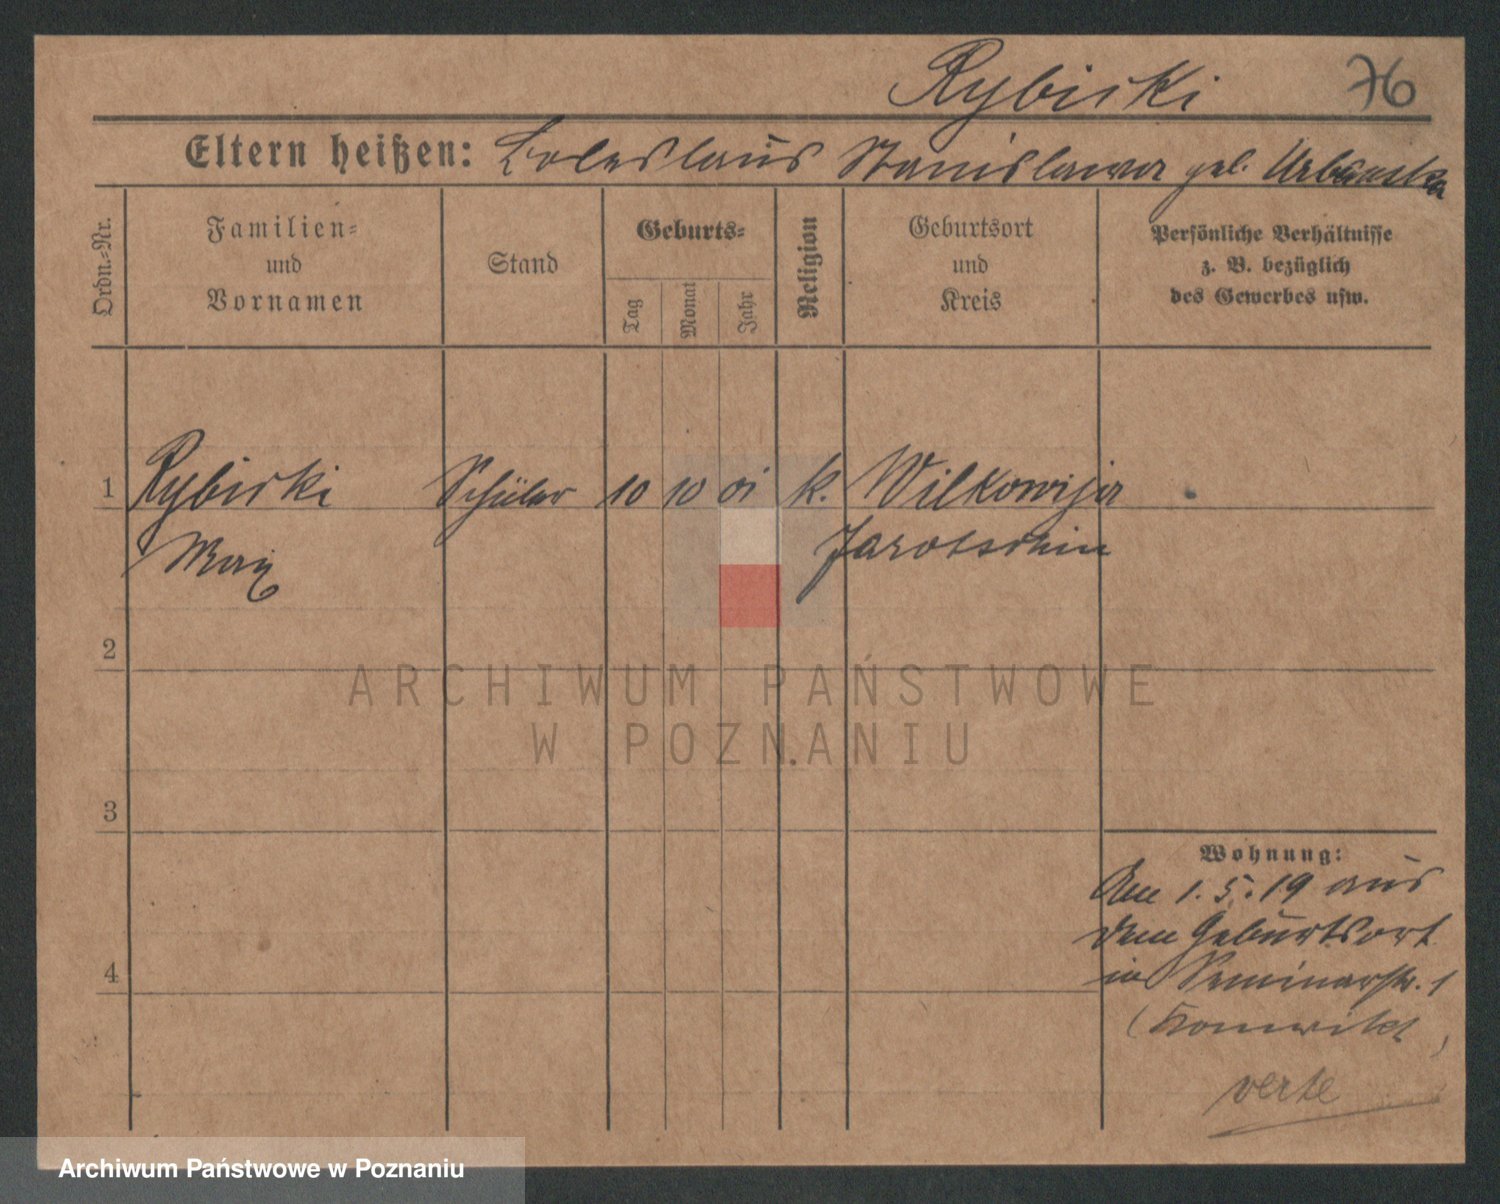 Rybicki 76
Eltern heißen: Boleslaus Stanislawa geb. Urbanska
Ordn.-Nr.
Familien-
und
Vornamen
Stand
Geburts-
Tag
Monat
Jahr
Religion
Geburtsort
und
Kreis
Persönliche Verhältnisse
z. B. bezüglich
des Gewerbes usw.
1 Rybicki Schüler 10 10 01 k. Wilkowija
Max Jarotschin
2
ARCHIWUM PAŃSTWOWE
W POZNANIU
3
Wohnung:
Am 1.5.19 aus
dem Geburtsort
in Seminarstr. 1
(Konwikt)
4
verte
Archiwum Państwowe w Poznaniu